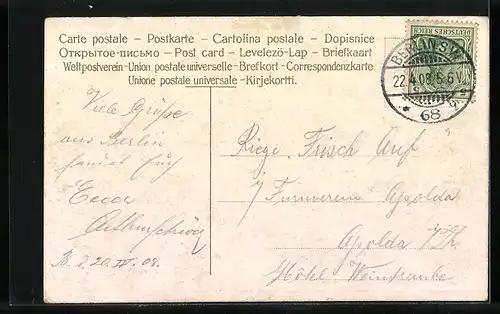 Carte postale – Postkarte – Cartolina postale – Dopisnice
Открытое-письмо – Post card – Levelező-Lap – Briefkaart
Weltpostverein-Union postale universelle-Brefkort-Correspondenzkarte
Unione postale universale-Kirjekortti.
DEUTSCHES REICH
BERLIN S.W.
22.4.08.5-6V.
* 68 *
Viele Grüsse
aus Berlin
sendet Euch
Euer
B. d. 20. IV. 08.
Riege "Frisch Auf"
Turnverein Apolda
Apolda i/Th.
Hôtel Weintraube